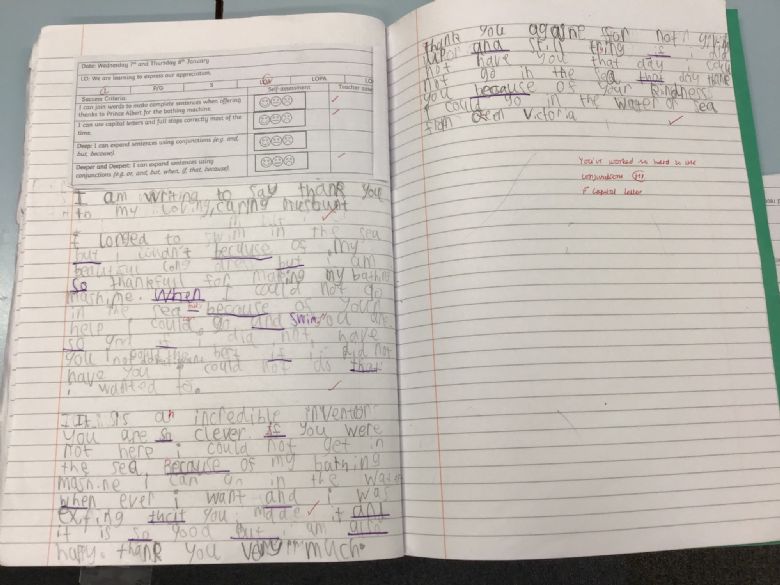 Date: Wednesday 7th and Thursday 8th January
LO: We are learning to express our appreciation.
LOPA
P/G S
Success Criteria Self-assessment Teacher
I can join words to make complete sentences when offering
thanks to Prince Albert for the bathing machine.
I can use capital letters and full stops correctly most of the
time.
Deep: I can expand sentences using conjunctions (e.g. and,
but, because).
Deeper and Deepest: I can expand sentences using
conjunctions (e.g. or, and, but, when, if, that, because).
I am writing to say thank you
to my loving, caring
I longed to swim in the sea
but i couldn't because of my
beautiful long dress but i am
so thankful for making my bathing
mashine. When I could not go
in the sea because of your
help i could go and swim you are
so if i did not have
you if i did not
have you i could not do that
i wanted to.
It is an incredible invention
You are so clever. If you were
not here i could not get in
the sea. Because of my bathing
mashine i can go in the water
when ever i want and i was
exiting that you made it and
it is so good but i am also
happy. thank you very much.
thank you againe for not giving
upon and still thing is i
not have you that day i could
not go in the sea that day thank
you because of your kindness
I could go in the water or sea
from Victoria
You've worked so hard to use
conjunctions
F Capital letter